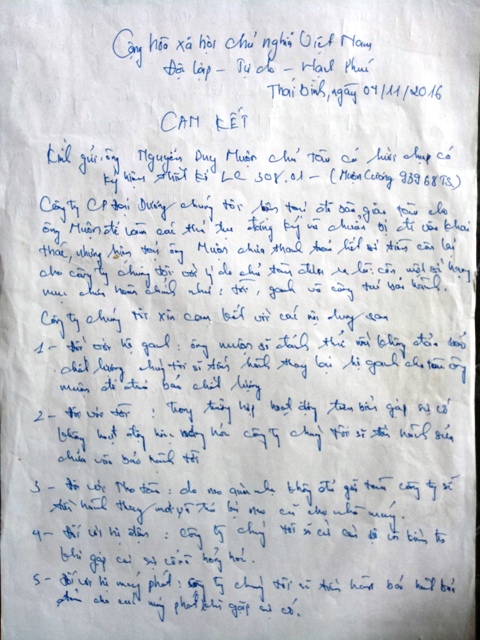 Cộng hòa xã hội chủ nghĩa Việt Nam
Độc lập - Tự do - Hạnh Phúc
Thái Bình, ngày 04/11/2016
CAM KẾT
Kính gửi: ông Nguyễn Duy Mườn chủ tàu cá lưới chụp có
ký hiệu thiết kế LC 308.01 - (Mườn Cương 93968 TS)
Công ty CP Đại Dương chúng tôi bàn giao tàu cho
ông Mườn để làm các thủ tục đăng ký và chuẩn bị đi vào khai
thác, nhưng hiện tại ông Mườn chưa thanh toán hết số tiền còn lại
cho công ty chúng tôi với lý do còn một số hạng
mục chưa hoàn chỉnh như: tời, ganh và công tác bảo hành.
Công ty chúng tôi xin cam kết với các nội dung sau
1 - Đối với hệ ganh: ông Mườn sẽ đánh thử nếu không đảm bảo
chất lượng chúng tôi sẽ tiến hành thay lại hệ ganh cho ông
Mườn để đảm bảo chất lượng
2 - Đối với tời: Trong trường hợp hoạt động trên biển gặp sự cố
không hoạt động hỏng hóc công ty chúng tôi sẽ tiến hành sửa
chữa và bảo hành tời
3 - Đối với neo tàu: do neo quá nhẹ không đủ giữ tàu công ty sẽ
tiến hành thay và trả lại neo cũ cho nhà máy.
4 - Đối với hệ điện: công ty chúng tôi sẽ cử cán bộ kiểm tra
khi gặp sự cố hỏng hóc.
5 - Đối với hệ máy phát: công ty chúng tôi sẽ tiến hành bảo hành
máy phát khi gặp sự cố.